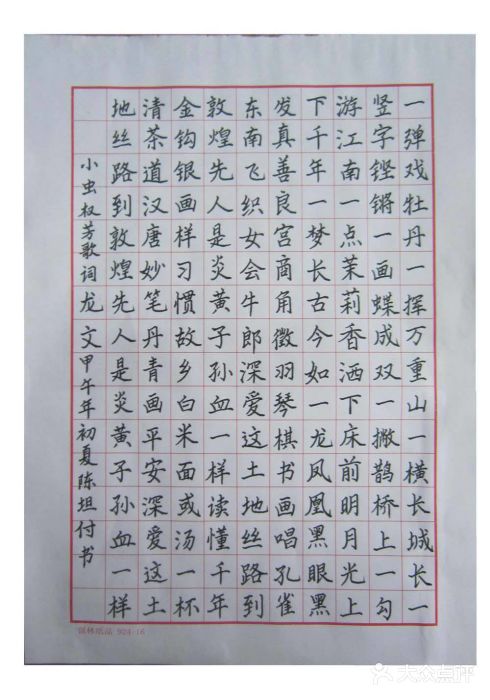 一弹戏牡丹一挥万重山一横长城长一
竖字铿锵一画蝶成双一撇鹊桥上一勾
游江南一点茉莉香洒下床前明月光上
下千年一梦长古今如一龙凤凰黑眼黑
发真善良宫商角徵羽琴棋书画唱孔雀
东南飞织女会牛郎深爱这土地丝路到
敦煌先人是炎黄子孙血一样读懂千年
金钩银画样习惯故乡白米面或汤一杯
清茶道汉唐妙笔丹青画平安深爱这土
地丝路到敦煌先人是炎黄子孙血一样
小虫权芳歌词龙文甲午年初夏陈坦付书
924-16
大众点评